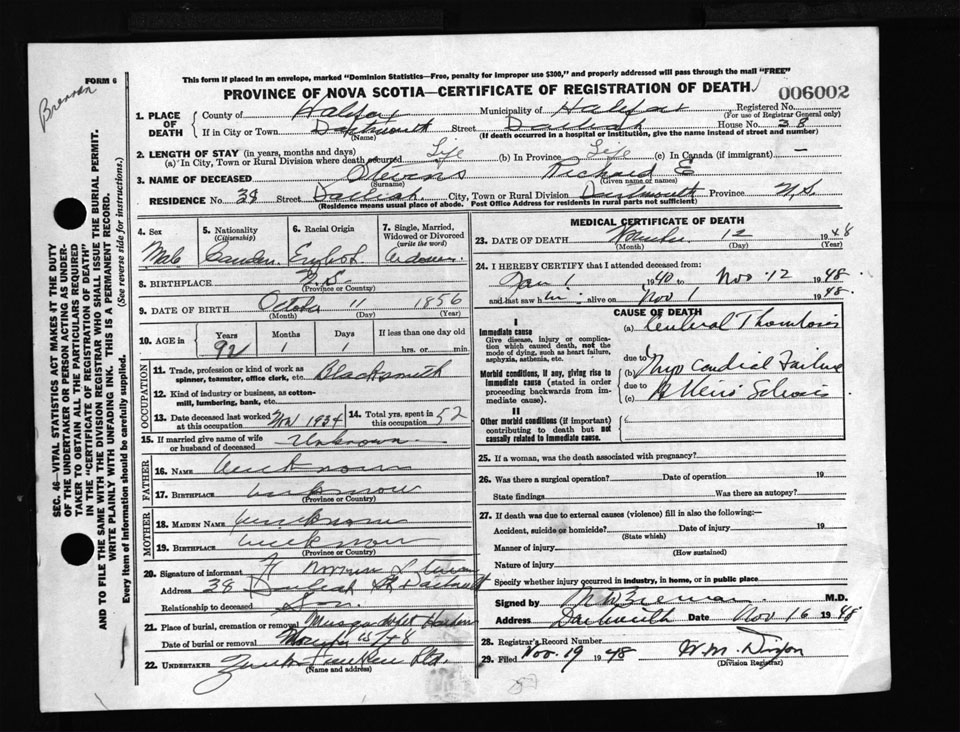 FORM 6
Brennan
This form if placed in an envelope, marked "Dominion Statistics—Free, penalty for improper use $300," and properly addressed will pass through the mail "FREE"
PROVINCE OF NOVA SCOTIA—CERTIFICATE OF REGISTRATION OF DEATH
006002
SEC. 46—VITAL STATISTICS ACT MAKES IT THE DUTY
OF THE UNDERTAKER OR PERSON ACTING AS UNDER-
TAKER TO OBTAIN ALL THE PARTICULARS REQUIRED
IN THE "CERTIFICATE OF REGISTRATION OF DEATH"
AND TO FILE THE SAME WITH THE DIVISION REGISTRAR WHO SHALL ISSUE THE BURIAL PERMIT.
WRITE PLAINLY WITH UNFADING INK. THIS IS A PERMANENT RECORD.
Every item of information should be carefully supplied. (See reverse side for instructions.)
1. PLACE OF DEATH County of Halifax Municipality of Halifax Registered No.
(For use of Registrar General only)
If in City or Town Dartmouth Street Dawlish House No. 38
(Name) (If death occurred in a hospital or institution, give the name instead of street and number)
2. LENGTH OF STAY (in years, months and days)
(a) In City, Town or Rural Division where death occurred Life (b) In Province Life (c) In Canada (if immigrant) —
3. NAME OF DECEASED Stevens Richard E
(Surname) (Given name or names)
RESIDENCE No. 38 Street Dawlish City, Town or Rural Division Dartmouth Province N.S.
(Residence means usual place of abode. Post Office Address for residents in rural parts not sufficient)
4. Sex 5. Nationality (Citizenship) 6. Racial Origin 7. Single, Married, Widowed or Divorced (write the word)
Male Canadian English Widower
8. BIRTHPLACE N.S.
(Province or Country)
9. DATE OF BIRTH October 11 1856
(Month) (Day) (Year)
10. AGE in Years Months Days If less than one day old
92 1 1 hrs. or min.
OCCUPATION
11. Trade, profession or kind of work as spinner, teamster, office clerk, etc. Blacksmith
12. Kind of industry or business, as cotton-mill, lumbering, bank, etc.
13. Date deceased last worked at this occupation 1934 14. Total yrs. spent in this occupation 52
15. If married give name of wife or husband of deceased Unknown
FATHER
16. NAME unknown
17. BIRTHPLACE unknown
(Province or Country)
MOTHER
18. MAIDEN NAME unknown
19. BIRTHPLACE unknown
(Province or Country)
20. Signature of informant
Address 38 Dawlish St Dartmouth
Relationship to deceased Son
21. Place of burial, cremation or removal Musquodoboit Harbour
Date of burial or removal 15/48
22. UNDERTAKER
(Name and address)
MEDICAL CERTIFICATE OF DEATH
23. DATE OF DEATH November 12 1948
(Month) (Day) (Year)
24. I HEREBY CERTIFY that I attended deceased from:
Jan 1 1940 to Nov 12 1948
and last saw him alive on Nov 1 1948
CAUSE OF DEATH
I
Immediate cause
Give disease, injury or complication which caused death, not the mode of dying, such as heart failure, asphyxia, asthenia, etc.
(a) Cerebral Thrombosis
due to
Morbid conditions, if any, giving rise to immediate cause (stated in order proceeding backwards from immediate cause).
(b) Myocardial Failure
due to
(c) Arterio Sclerosis
II
Other morbid conditions (if important) contributing to death but not causally related to immediate cause.
25. If a woman, was the death associated with pregnancy?
26. Was there a surgical operation? Date of operation 19
State findings Was there an autopsy?
27. If death was due to external causes (violence) fill in also the following:—
Accident, suicide or homicide? Date of injury 19
(State which)
Manner of injury
(How sustained)
Nature of injury
Specify whether injury occurred in industry, in home, or in public place
Signed by M.D.
Address Dartmouth Date Nov 16 1948
28. Registrar's Record Number
29. Filed Nov. 19 1948 W.M. Dixon
(Division Registrar)